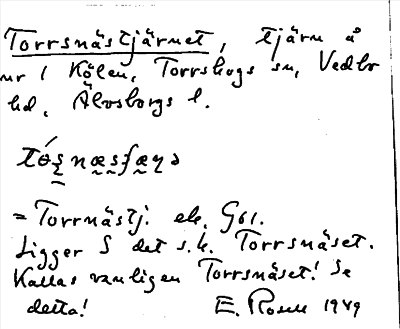 Torrsnästjärnet, tjärn å
nr 1 Kölen, Torrskogs sn, Vedbo
hd, Älvsborgs l.
= Torrnästj. ek. G61.
Ligger S det s.k. Torrsnäset.
Kallas vanligen Torrsnäset! Se
detta! E. Rosell 1949